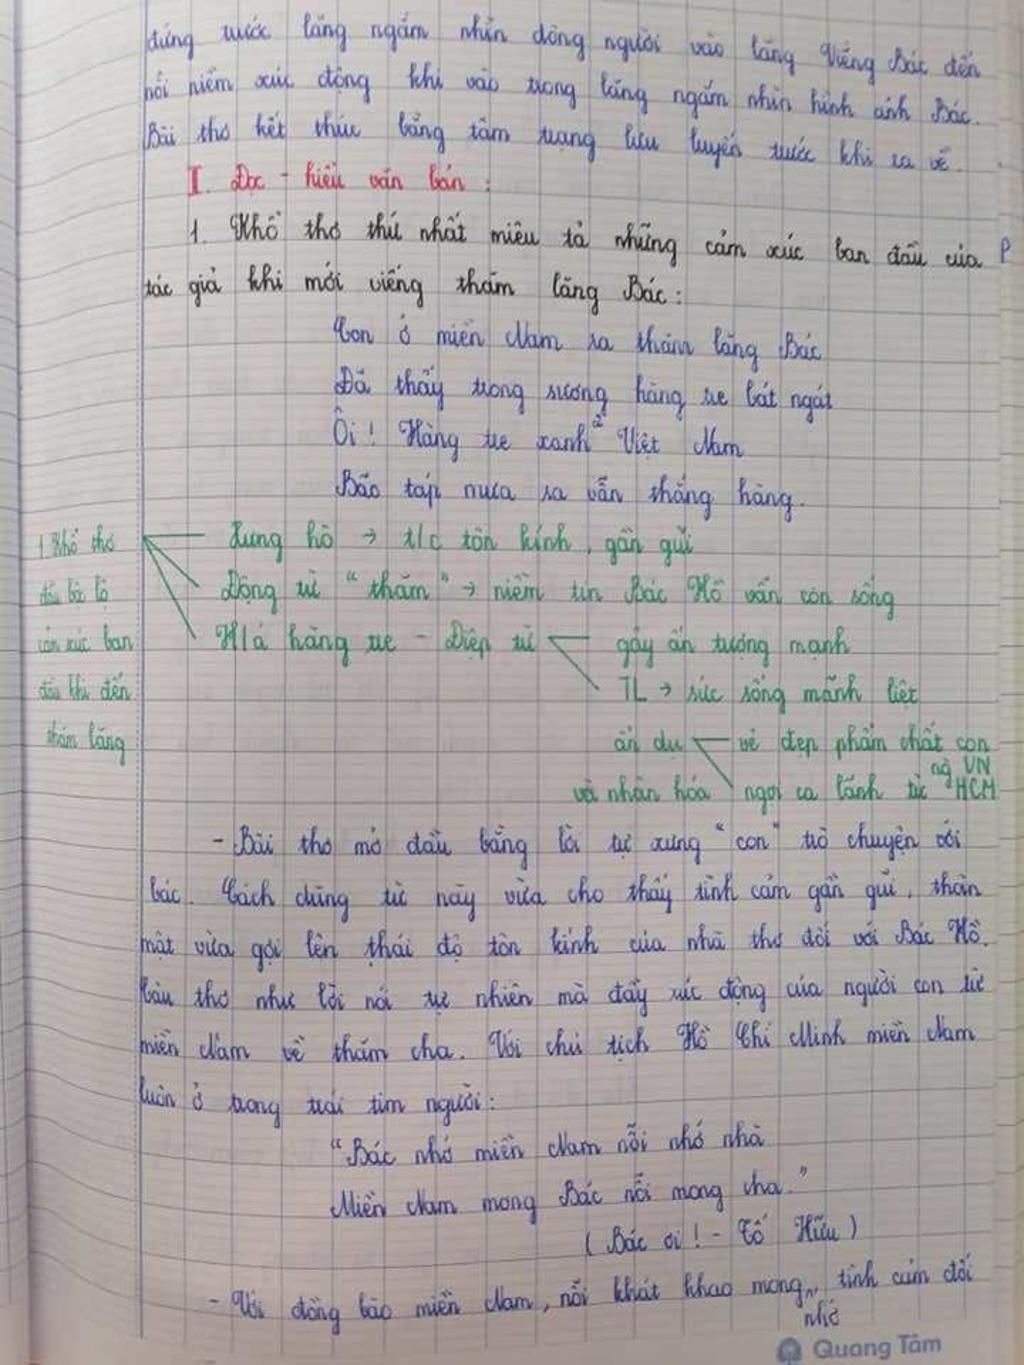 đứng trước lăng ngắm nhìn dòng người vào lăng Viếng Bác đến
nỗi niềm xúc động khi vào trong lăng ngắm nhìn hình ảnh Bác.
Bài thơ kết thúc bằng tâm trạng lưu luyến trước khi ra về.
II. Đọc - hiểu văn bản :
1. Khổ thơ thứ nhất miêu tả những cảm xúc ban đầu của
tác giả khi mới viếng thăm lăng Bác :
Con ở miền Nam ra thăm lăng Bác
Đã thấy trong sương hàng tre bát ngát
Ôi ! Hàng tre xanh² Việt Nam
Bão táp mưa sa vẫn thẳng hàng.
1. Khổ thơ
đầu bộc lộ
cảm xúc ban
đầu khi đến
thăm lăng
Xưng hô → t/c tôn kính, gần gũi
Động từ “thăm” → niềm tin Bác Hồ vẫn còn sống
H/á hàng tre - Điệp từ gây ấn tượng mạnh
TL → sức sống mãnh liệt
ẩn dụ vẻ đẹp phẩm chất con
ng VN
và nhân hóa ngợi ca lãnh tụ HCM
- Bài thơ mở đầu bằng lời tự xưng “con” trò chuyện với
bác. Cách dùng từ này vừa cho thấy tình cảm gần gũi, thân
mật vừa gợi lên thái độ tôn kính của nhà thơ đối với Bác Hồ.
Câu thơ như lời nói tự nhiên mà đầy xúc động của người con từ
miền Nam về thăm cha. Với chủ tịch Hồ Chí Minh miền Nam
luôn ở trong trái tim người :
“Bác nhớ miền Nam nỗi nhớ nhà
Miền Nam mong Bác nỗi mong cha.”
( Bác ơi ! - Tố Hữu )
- Với đồng bào miền Nam, nỗi khát khao mong, tình cảm đối
nhớ
Quang Tâm